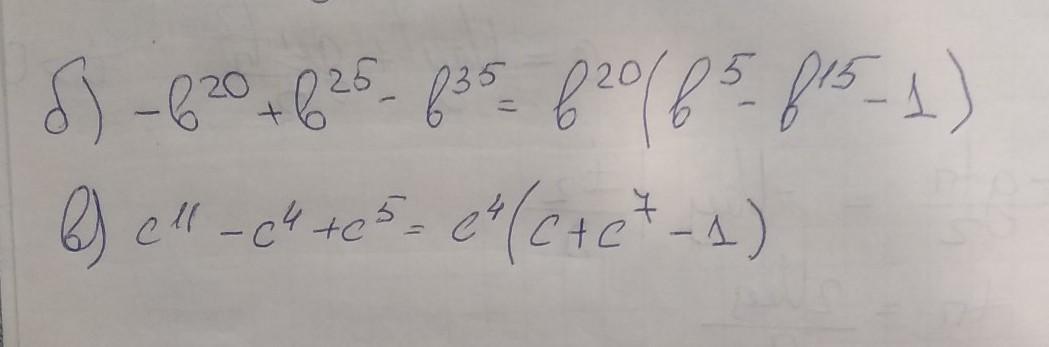 б) -b²⁰ + b²⁵ - b³⁵ = b²⁰(b⁵ - b¹⁵ - 1)
в) c¹¹ - c⁴ + c⁵ = c⁴(c + c⁷ - 1)